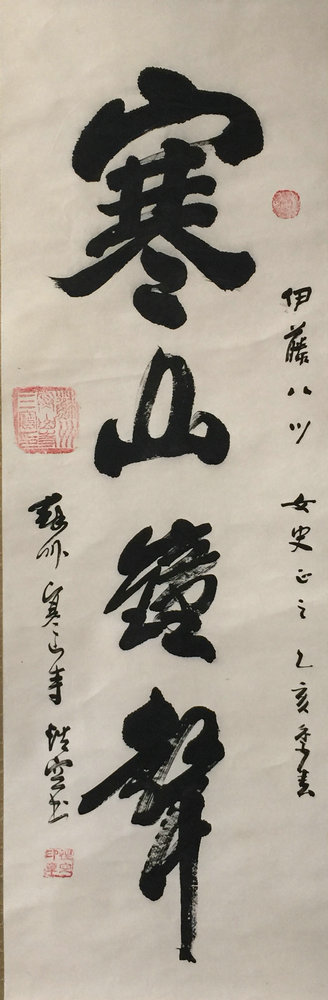 伊藤八少 女史正之 乙亥季春
寒山鐘聲
蘇州寒山寺 性空书